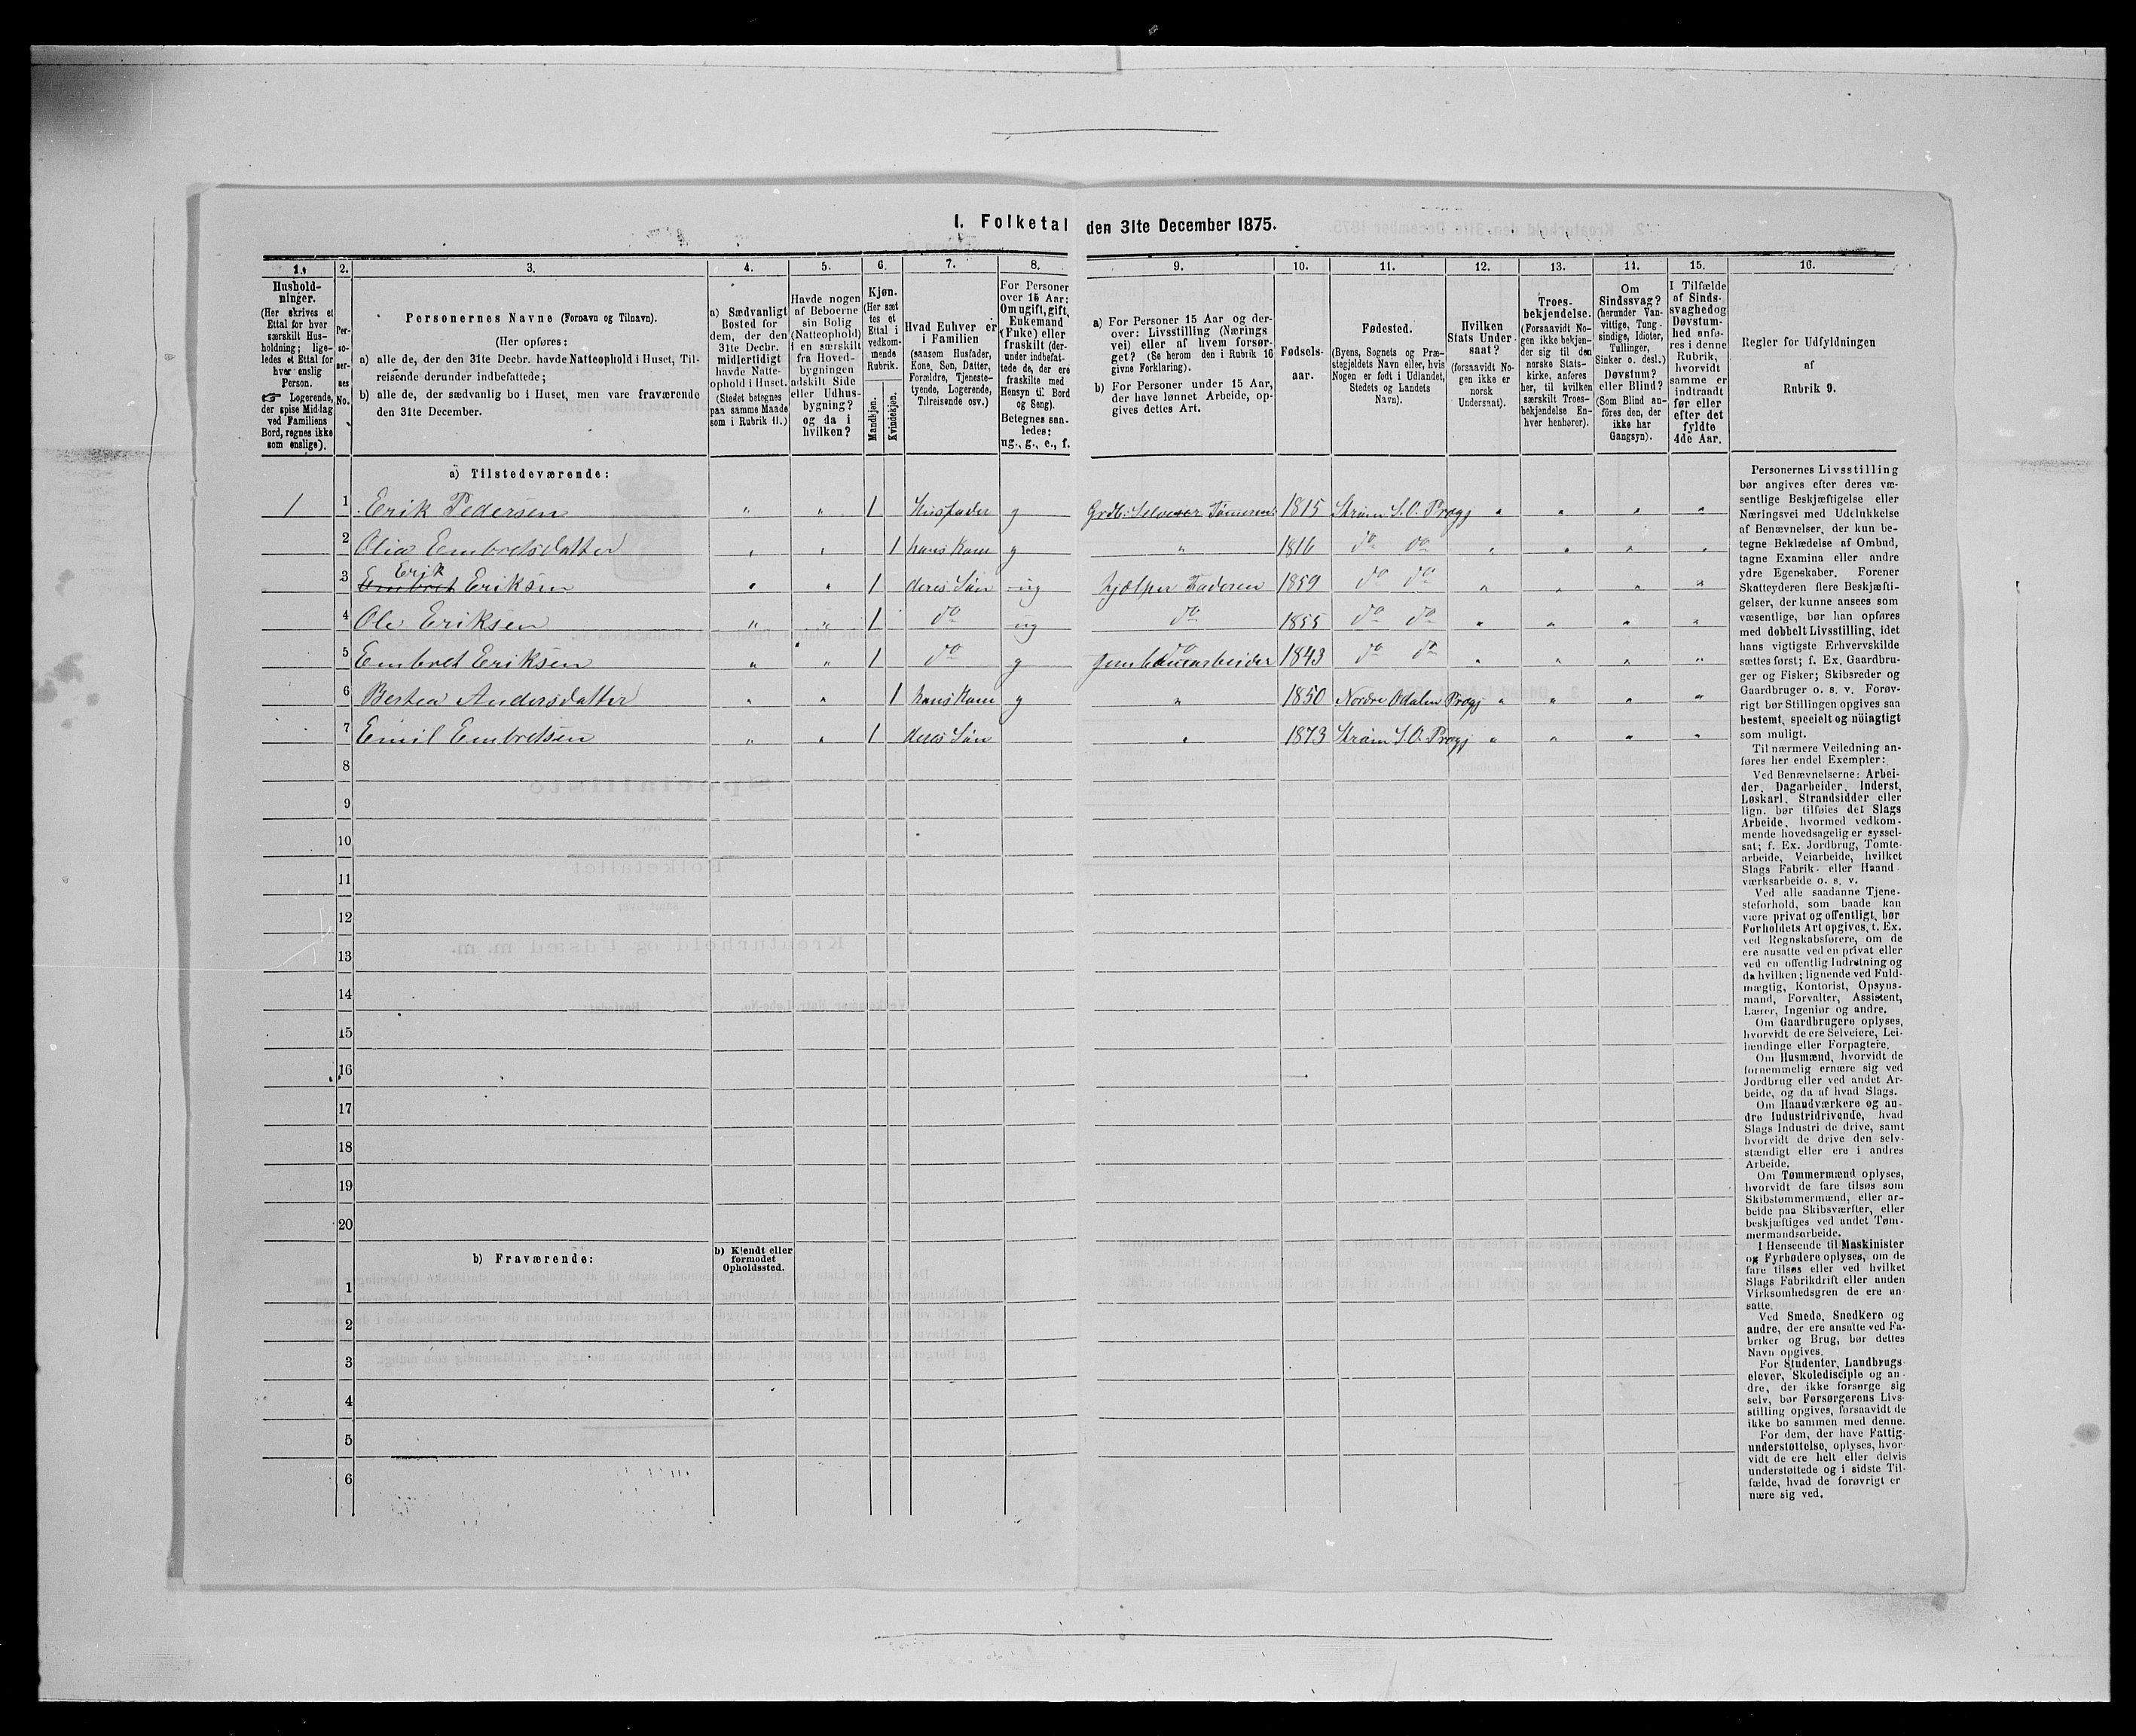 1. Folketal den 31te December 1875.
1.
Hushold-
ninger.
(Her skrives et
Ettal for hver
særskilt Hus-
holdning; lige-
ledes et Ettal for
hver enslig
Person.
☞ Logerende,
der spise Middag
ved Familiens
Bord, regnes ikke
som enslige).
2.
Per-
so-
ner-
nes
No.
3.
Personernes Navne (Fornavn og Tilnavn).
(Her opføres:
a) alle de, der den 31te Decbr. havde Natteophold i Huset, Til-
reisende derunder indbefattede;
b) alle de, der sædvanlig bo i Huset, men vare fraværende
den 31te December.
4.
a) Sædvanligt
Bosted for
dem, der den
31te Decbr.
midlertidigt
havde Natte-
ophold i Huset.
(Stedet betegnes
paa samme Maade
som i Rubrik 11.)
5.
Havde nogen
af Beboerne
sin Bolig
(Natteophold)
i en særskilt
fra Hoved-
bygningen
adskilt Side
eller Udhus-
bygning?
og da i
hvilken?
6.
Kjøn.
(Her sæt
tes et
Ettal i
vedkom-
mende
Rubrik.
Mandkjøn.
Kvindekjøn.
7.
Hvad Enhver er
i Familien
(saasom Husfader,
Kone, Søn, Datter,
Forældre, Tjeneste-
tyende, Logerende,
Tilreisende osv.)
8.
For Personer
over 15 Aar:
Om ugift, gift,
Enkemand
(Enke) eller
fraskilt (der-
under indbefat-
tede de, der ere
fraskilte med
Hensyn til Bord
og Seng).
Betegnes saa-
ledes:
ug., g., e., f.
9.
a) For Personer 15 Aar og der-
over: Livsstilling (Nærings
vei) eller af hvem forsør-
get? (Se herom den i Rubrik 16
givne Forklaring).
b) For Personer under 15 Aar,
der have lønnet Arbeide, op-
gives dettes Art.
10.
Fødsels-
aar.
11.
Fødested.
(Byens, Sognets og Præ-
stegjeldets Navn eller, hvis
Nogen er født i Udlandet,
Stedets og Landets
Navn).
12.
Hvilken
Stats Under-
saat?
(forsaavidt No-
gen ikke er
norsk
Undersaat).
13.
Troes-
bekjendelse.
(Forsaavidt No-
gen ikke bekjen-
der sig til den
norske Stats-
kirke, anføres
her, til hvilken
særskilt Troes-
bekjendelse En-
hver henhører).
14.
Om
Sindssvag?
(herunder Van-
vittige, Tung-
sindige, Idioter,
Tullinger,
Sinker o. desl.)
Døvstum?
eller Blind?
(Som Blind an-
föres den, der
ikke har
Gangsyn).
15.
I Tilfælde
af Sinds-
svaghed og
Døvstum-
hed anfø-
res i denne
Rubrik,
hvorvidt
samme er
indtraadt
før eller
efter det
fyldte
4de Aar.
16.
Regler for Udfyldningen
af
Rubrik 9.
a) Tilstedeværende:
1 1 Erik Pedersen " " 1 Husfader g Grdb. Selveier 1815 Strøm S. O. Prægj " " " "
2 Olia Embretsdatter " " 1 hans Kone g " 1816 do do " " " "
3 Embret Erik Eriksen " " 1 deres Søn ug hjælper Faderen 1859 do do " " " "
4 Ole Eriksen " " 1 do ug do 1855 do do " " " "
5 Embret Eriksen " " 1 do g 1843 do do " " " "
6 Bertea Andersdatter " " 1 hans Kone g " 1850 Nordre Odalen Prægj " " " "
7 Emil Embretsen " " 1 deres Søn " 1873 Strøm S. O. Prægj " " " "
8
9
10
11
12
13
14
15
16
17
18
19
20
b) Fraværende:
b) Kjendt eller
formodet
Opholdssted.
1
2
3
4
5
6
Personernes Livsstilling
bør angives efter deres væ-
sentlige Beskjæftigelse eller
Næringsvei med Udelukkelse
af Benævnelser, der kun be-
tegne Beklædelse af Ombud,
tagne Examina eller andre
ydre Egenskaber. Forener
Skatteyderen flere Beskjæfti-
gelser, der kunne ansees som
væsentlige, bør han opføres
med dobbelt Livsstilling, idet
hans vigtigste Erhvervskilde
sættes først; f. Ex. Gaardbru-
ger og Fisker; Skibsreder og
Gaardbruger o. s. v. Forøv-
rigt bør Stillingen opgives saa
bestemt, specielt og nöiagtigt
som muligt.
Til nærmere Veiledning an-
føres her endel Exempler:
Ved Benævnelserne: Arbei-
der, Dagarbeider, Inderst,
Løskarl, Strandsidder eller
lign. bør tilføies det Slags
Arbeide, hvormed vedkom-
mende hovedsagelig er syssel-
sat; f. Ex. Jordbrug, Tomte-
arbeide, Veiarbeide, hvilket
Slags Fabrik- eller Haand-
værksarbeide o. s. v.
Ved alle saadanne Tjene-
steforhold, som baade kan
være privat og offentligt, bør
Forholdets Art opgives, t. Ex.
ved Regnskabsførere, om de
ere ansatte ved en privat eller
ved en offentlig Indretning og
da hvilken; lignende ved Fuld-
mægtig, Kontorist, Opsyns-
mand, Forvalter, Assistent,
Lærer, Ingeniør og andre.
Om Gaardbrugere oplyses,
hvorvidt de ere Selveiere, Lei-
lændinge eller Forpagtere.
Om Husmænd, hvorvidt de
fornemmelig ernære sig ved
Jordbrug eller ved andet Ar-
beide, og da af hvad Slags.
Om Haandværkere og an-
dre Industridrivende, hvad
Slags Industri de drive, samt
hvorvidt de drive den selv-
stændigt eller ere i andres
Arbeide.
Om Tømmermænd oplyses,
hvorvidt de fare tilsøs som
Skibstømmermænd, eller ar-
beide paa Skibsværfter, eller
beskjæftiges ved andet Tøm-
mermandsarbeide.
I Henseende til Maskinister
og Fyrbødere oplyses, om de
fare tilsøs eller ved hvilket
Slags Fabrikdrift eller anden
Virksomhedsgren de ere an-
satte.
Ved Smede, Snedkere og
andre, der ere ansatte ved Fa-
briker og Brug, bør dettes
Navn opgives.
For Studenter, Landbrugs-
elever, Skoledisciple og an-
dre, der ikke forsørge sig
selv, bør Forsørgerens Livs-
stilling opgives, forsaavidt de
ikke bo sammen med denne.
For dem, der have Fattig-
understøttelse, oplyses, hvor-
vidt de ere helt eller delvis
understøttede og i sidste Til-
fælde, hvad de forøvrigt er-
nære sig ved.